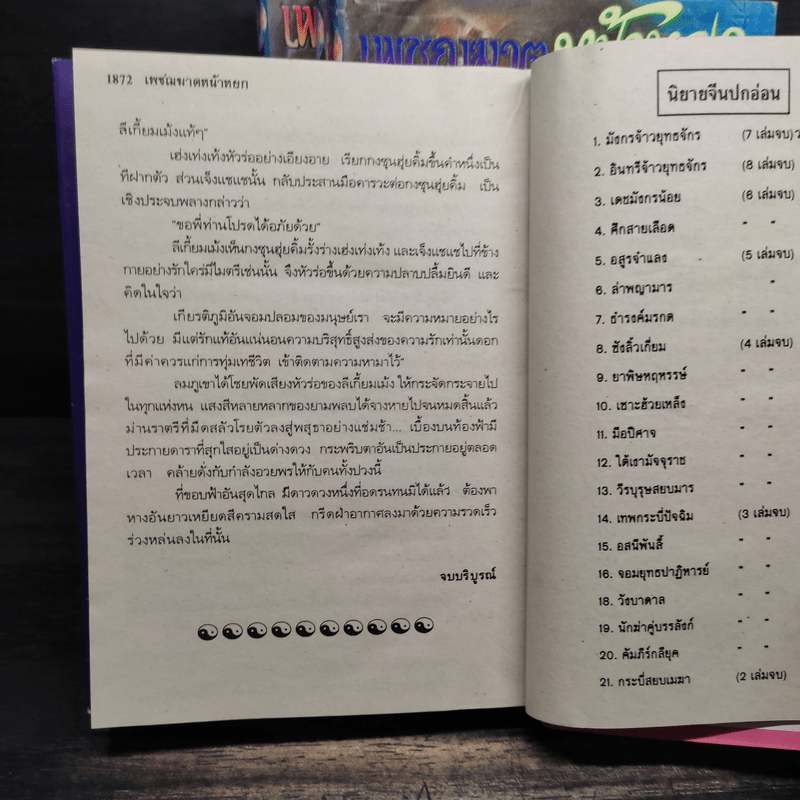 เพชฌฆาต
1872 เพชฌฆาตหน้าหยก
ลีเกี้ยมเม้งแท้ๆ"
เฮ่งเท่งเท้งหัวร่ออย่างเอียงอาย เรียกกงซุนฮุ่ยคิ้มขึ้นคำหนึ่งเป็น
ทีฝากตัว ส่วนเจ็งแชแชนั้น กลับประสานมือคารวะต่อกงซุนฮุ่ยคิ้ม เป็น
เชิงประจบพลางกล่าวว่า
"ขอพี่ท่านโปรดได้อภัยด้วย"
ลีเกี้ยมเม้งเห็นกงซุนฮุ่ยคิ้มรั้งร่างเฮ่งเท่งเท้ง และเจ็งแชแชไปที่ข้าง
กายอย่างรักใคร่มีไมตรีเช่นนั้น จึงหัวร่อขึ้นด้วยความปลาบปลื้มยินดี และ
คิดในใจว่า
เกียรติภูมิอันจอมปลอมของมนุษย์เรา จะมีความหมายอย่างไร
ไปด้วย มีแต่รักแท้อันแน่นอนความบริสุทธิ์สูงส่งของความรักเท่านั้นดอก
ที่มีค่าควรแก่การทุ่มเทชีวิต เข้าติดตามความหามาไว้"
ลมภูเขาได้โชยพัดเสียงหัวร่อของลีเกี้ยมเม้ง ให้กระจัดกระจายไป
ในทุกแห่งหน แสงสีหลายหลากของยามพลบได้จางหายไปจนหมดสิ้นแล้ว
ม่านราตรีที่มืดสลัวโรยตัวลงสู่พสุธาอย่างแช่มช้า... เบื้องบนท้องฟ้ามี
ประกายดาราที่สุกใสอยู่เป็นต่างดวง กระพริบตาอันเป็นประกายอยู่ตลอด
เวลา คล้ายดั่งกับกำลังอวยพรให้กับคนทั้งปวงนี้
ที่ขอบฟ้าอันสุดไกล มีดาวดวงหนึ่งที่อดรนทนมิได้แล้ว ต้องพา
หางอันยาวเหยียดสีครามสดใส กรีดฝ่าอากาศลงมาด้วยความรวดเร็ว
ร่วงหล่นลงในที่นั้น
จบบริบูรณ์
นิยายจีนปกอ่อน
1. มังกรจ้าวยุทธจักร (7 เล่มจบ)
2. อินทรีจ้าวยุทธจักร (8 เล่มจบ)
3. เดชมังกรน้อย (6 เล่มจบ)
4. ศึกสายเลือด " "
5. อสูรจำแลง (5 เล่มจบ)
6. ล่าพญามาร "
7. ธำรงค์มรกต "
8. ซังลิ้วเกี่ยม (4 เล่มจบ)
9. ยาพิษหฤหรรษ์ " "
10. เซาะฮ้วยเหล็ง " "
11. มือปีศาจ " "
12. ใต้เงามัจจุราช " "
13. วีรบุรุษสยบมาร " "
14. เทพกระบี่ปัจฉิม (3 เล่มจบ)
15. อสนีพันลี้ " "
16. จอมยุทธปาฏิหารย์ " "
18. วังบาดาล " "
19. นักฆ่าคู่บรรลังก์ " "
20. คัมภีร์กลียุค " "
21. กระบี่สยบเมฆา (2 เล่มจบ)